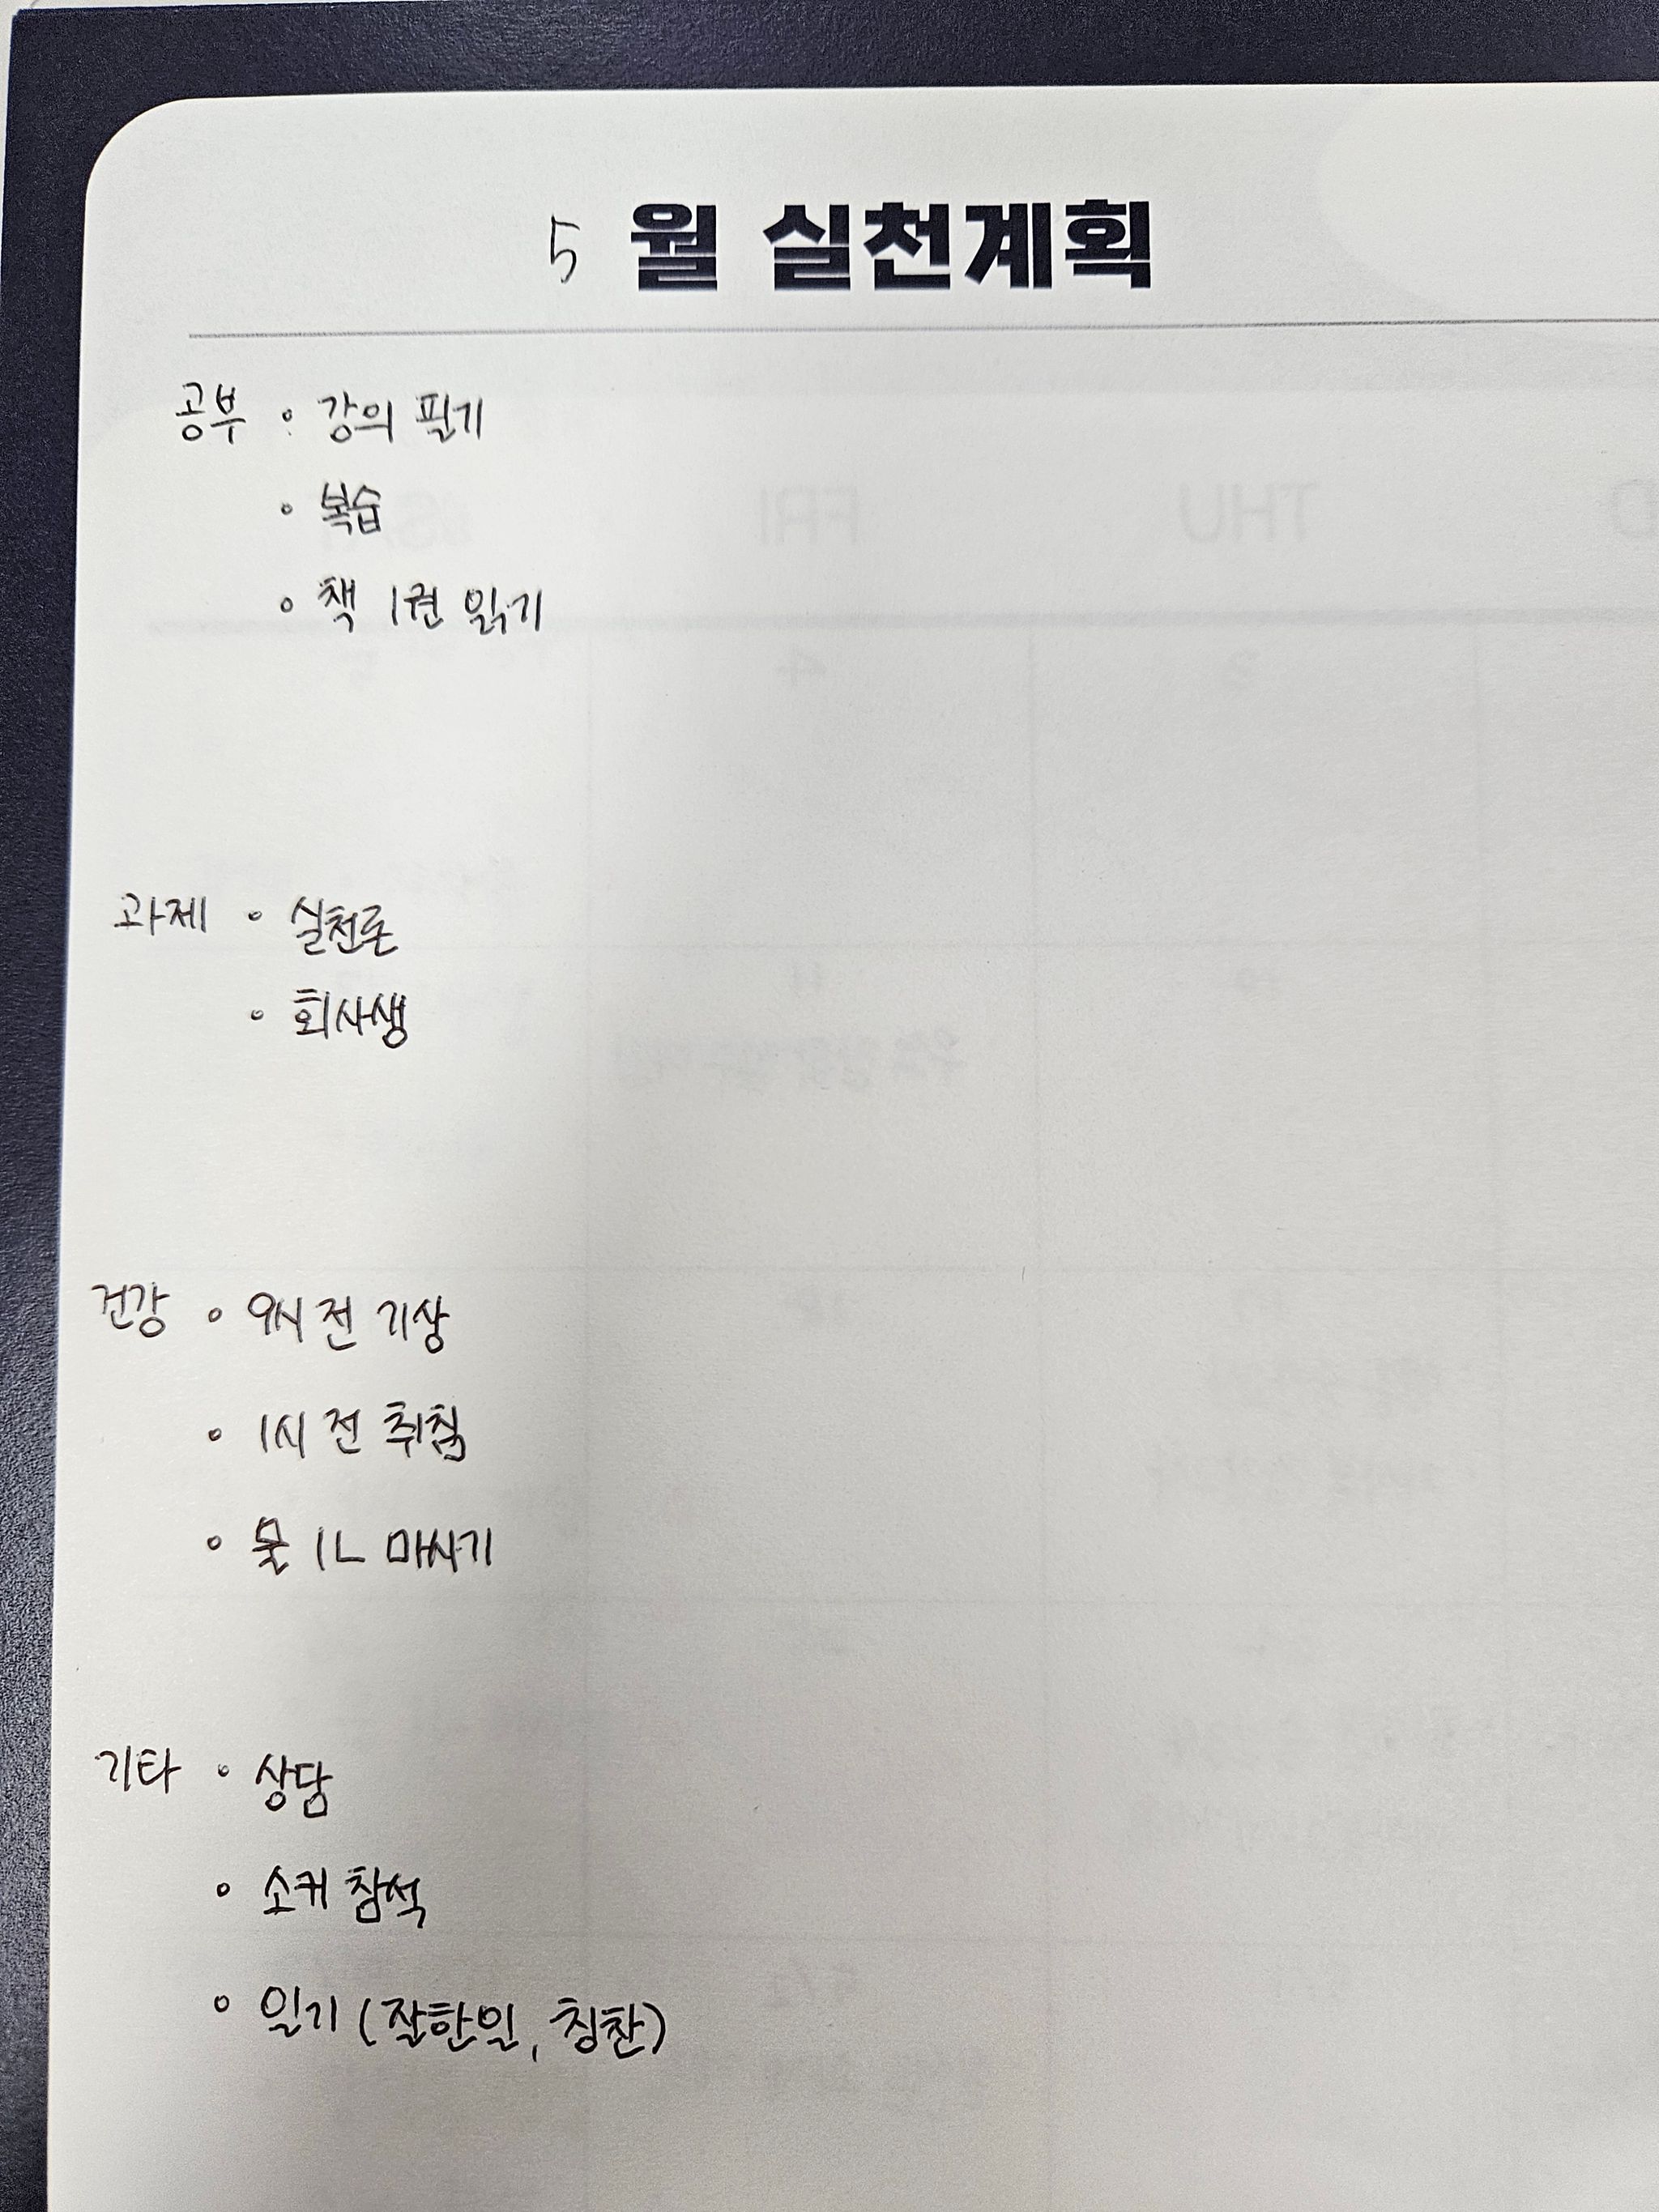 5 월 실천계획
공부 • 강의 필기
• 복습
• 책 1권 읽기
과제 • 실천론
• 회사생
건강 • 9시 전 기상
• 1시 전 취침
• 물 1L 마시기
기타 • 상담
• 소커 참석
• 일기 (잘한일, 칭찬)